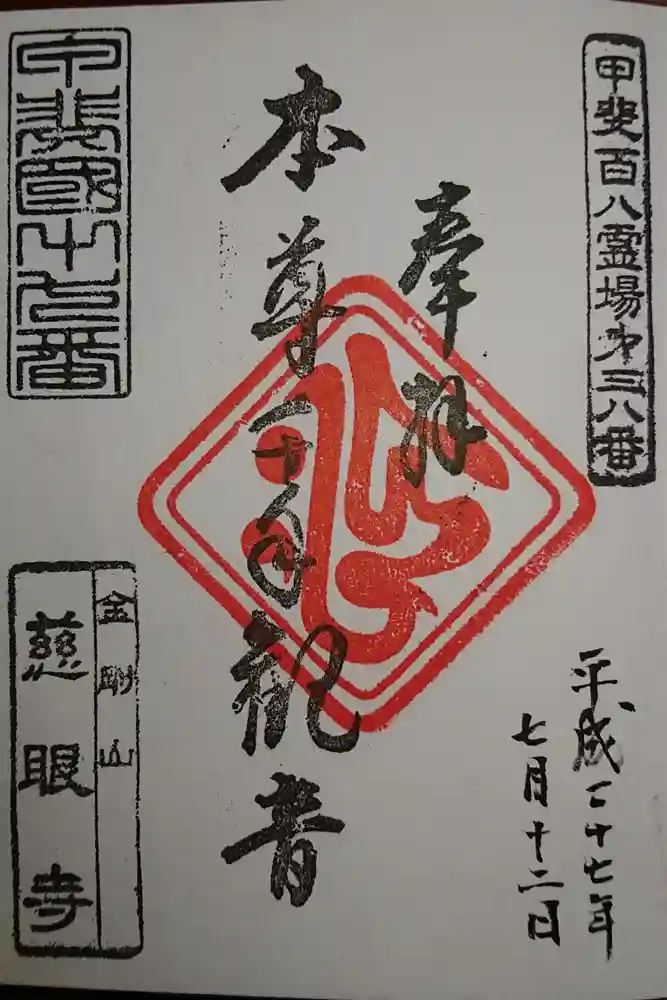 甲斐百八霊場第三八番
奉拝
本尊千手観音
平成二十七年
七月十二日
甲斐國
番
金剛山
慈眼寺